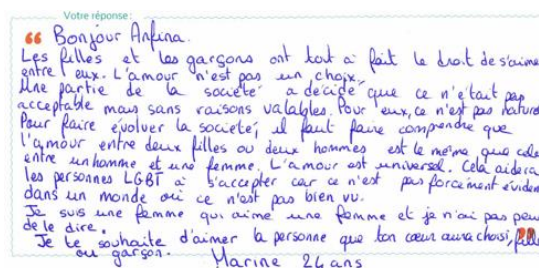 Votre réponse:
Bonjour Anfina.
Les filles et les garçons ont tout à fait le droit de s'aime
entre eux. L'amour n'est pas un choix.
Une partie de la société a décidé que ce n'était pas
acceptable mais sans raisons valables. Pour eux, ce n'est pas nature
Pour faire évoluer la société, il faut faire comprendre que
l'amour entre deux filles ou deux hommes est le même que cele
entre un homme et une femme. L'amour est universel. Cela aidera
les personnes LGBT à s'accepter car ce n'est pas forcément éviden
dans un monde où ce n'est pas bien vu.
Je suis une femme qui aime une femme et je n'ai pas peu
de le dire.
Je te souhaite d'aimer la personne que ton cœur aura choisi, fille
ou garçon.
Marine 24 ans